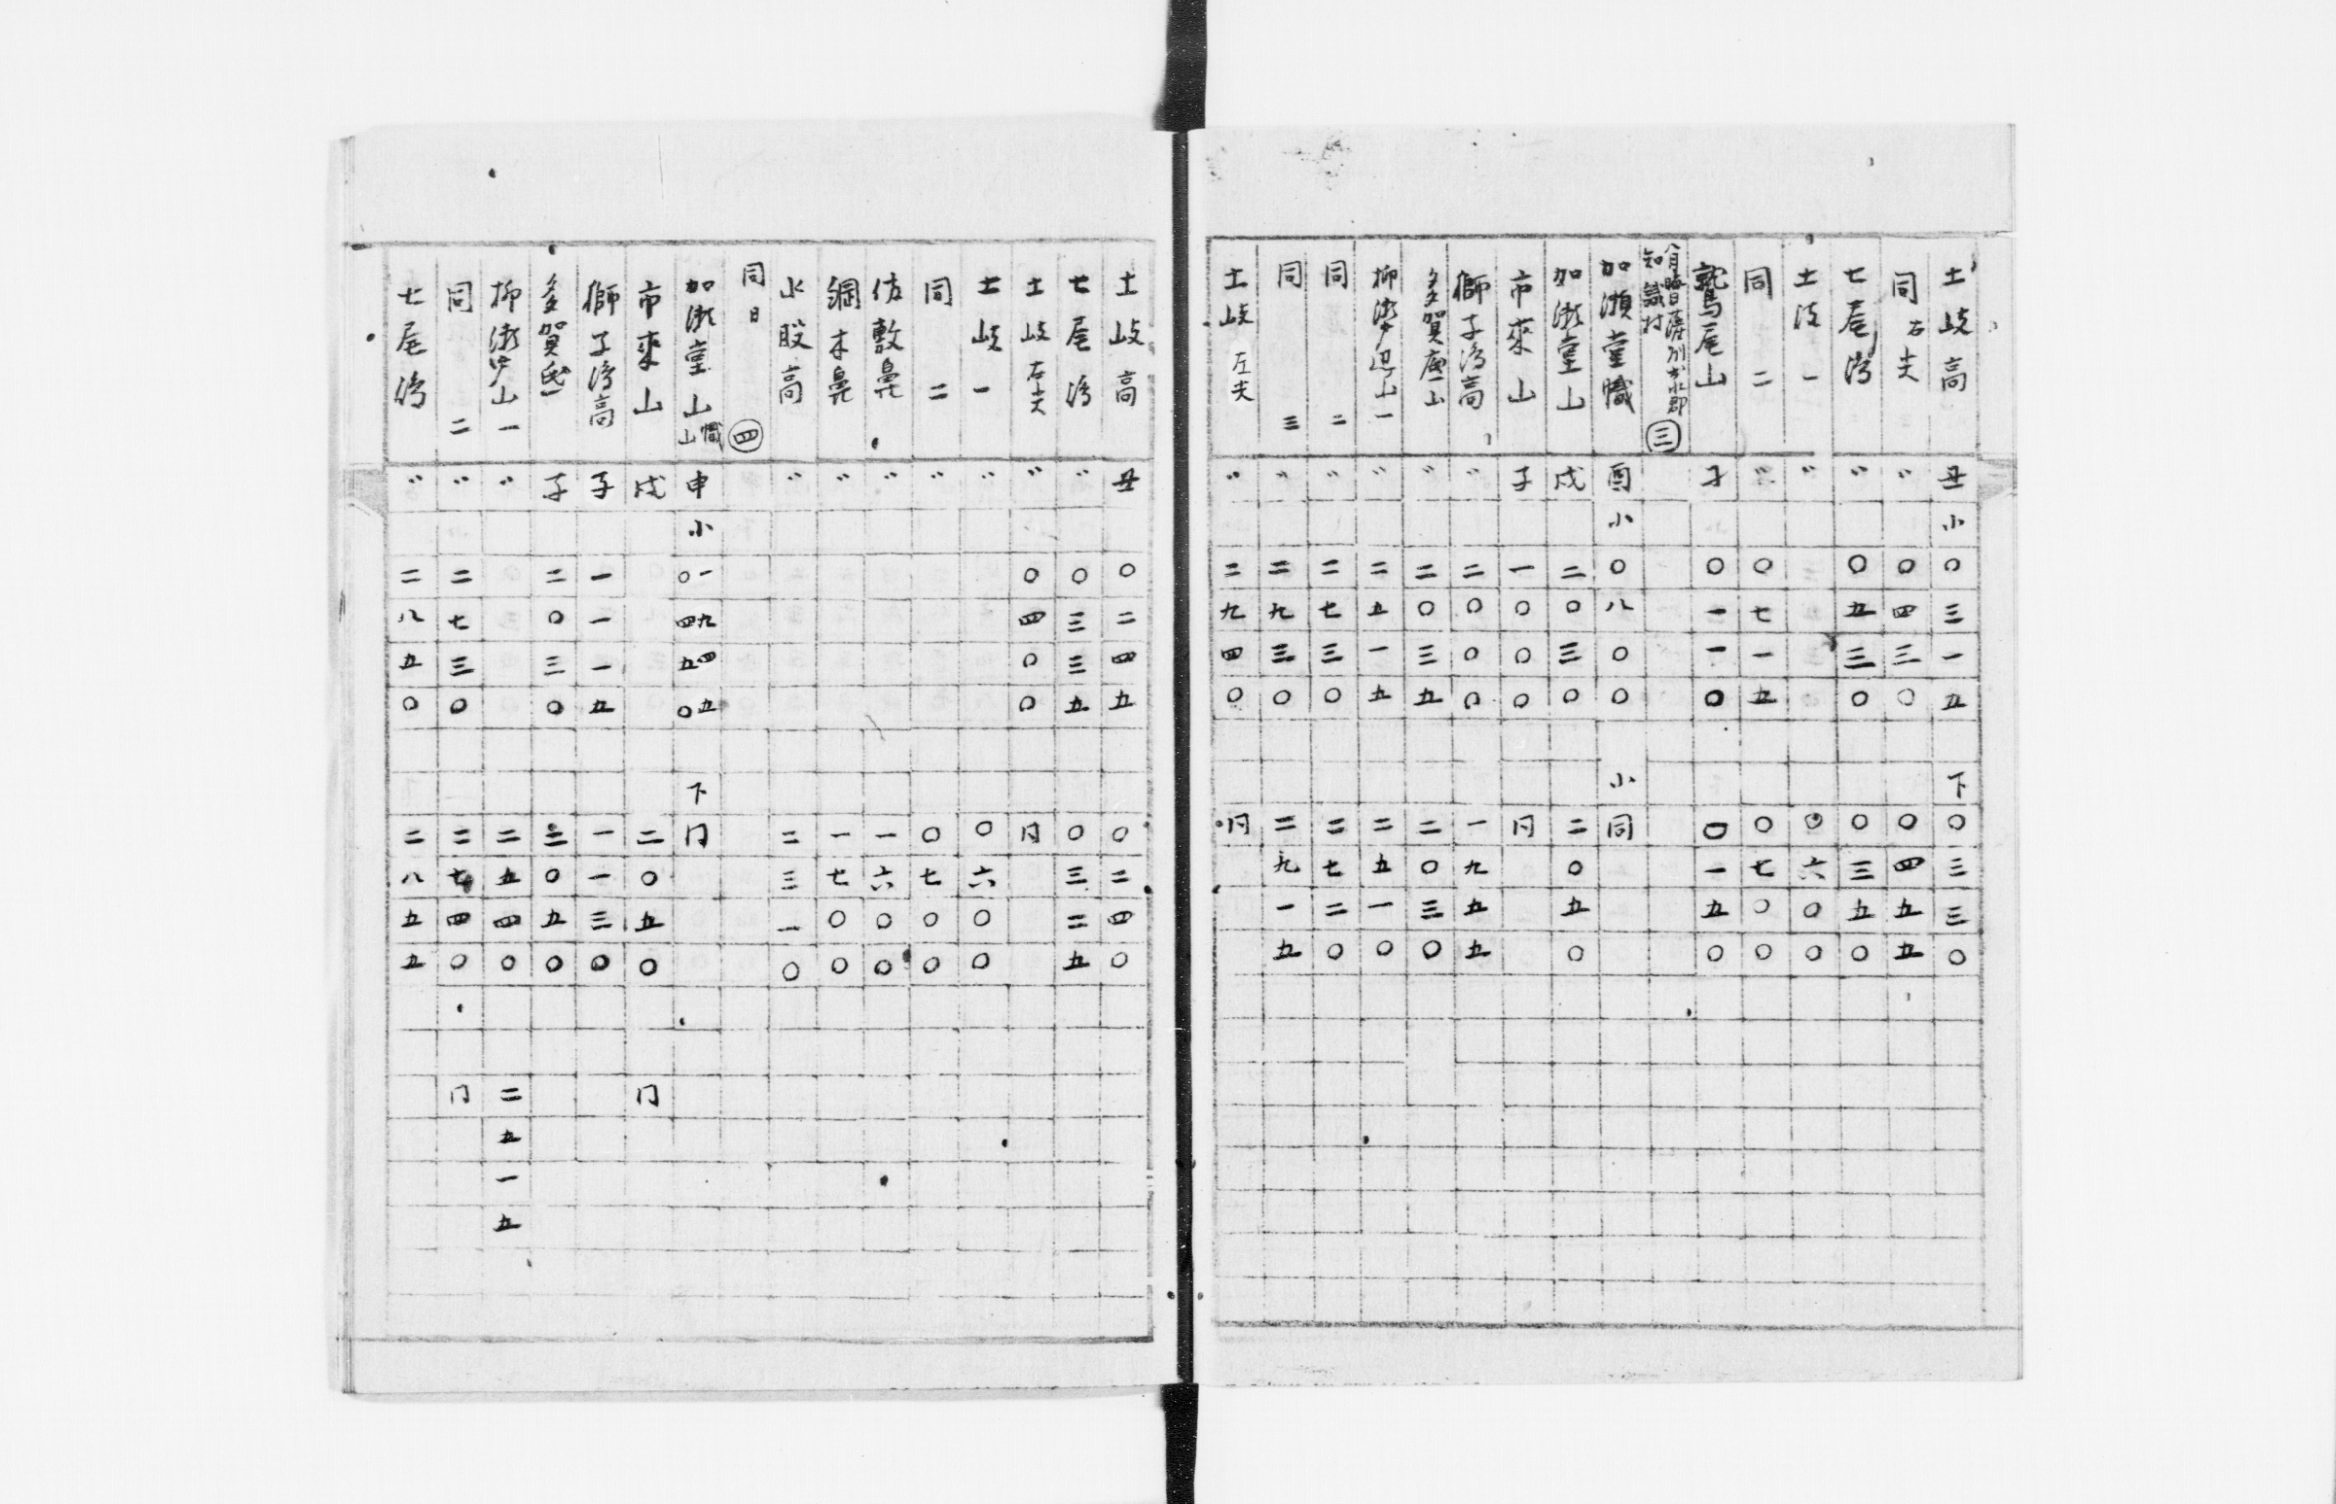 土岐高 丑 小 〇三一五 下 〇三三〇
同 右夫 〃 〇四三〇 〇四五五
七尾湾 〃 〇五三〇 〇三五〇
土岐 一 〃 〇六〇〇
同 二 〃 〇七一五 〇七〇〇
鷲尾山 子 〇一一〇 〇一五〇
八月晦日 出水郡
知識村 三
加瀬堂幟 酉 小 〇八〇〇 小 同
加瀬堂山 戌 二〇三〇 二〇五〇
市來山 子 一〇〇〇 同
獅子湾高 〃 二〇〇〇 一九五五
多賀 山 〃 二〇三五 二〇三〇
柳瀬 山 一 〃 二五一五 二五一〇
同 二 〃 二七三〇 二七二〇
同 三 〃 二九三〇 二九一五
土岐 左夫 〃 二九四〇 同
土岐高 丑 〇二四五 〇二四〇
七尾湾 〃 〇三三五 〇三二五
土岐 右夫 〃 〇四〇〇 同
土岐 一 〃 〇六〇〇
同 二 〃 〇七〇〇
佐敷鼻 〃 一六〇〇
網木鼻 〃 一七〇〇
水股高 〃 二三一〇
同日 四
加瀬堂山 幟山 申 小 一九四五 〇四五〇 下 同
市來山 戌 二〇五〇 同
獅子湾高 子 一一一五 一一三〇
多賀 子 二〇三〇 三〇五〇
柳瀬 山 一 〃 二五四〇 二五一五
同 二 〃 二七三〇 二七四〇 同
七尾湾 〃 二八五〇 二八五五